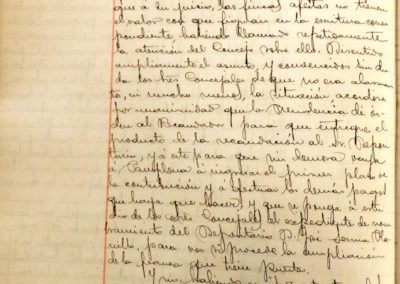 que á su juicio, las fincas afectas no tienen
el valor con que figuran en la escritura corres
pondiente habiendo llamado repetidamente
la atención del Concejo sobre ello. Discutido
ampliamente el asunto, y convencidos sin du
da los tres Concejales de que no era alarman
te, ni mucho menos, la situación acordose
por unanimidad que la Presidencia dé or
den al Recaudador para que entregue el
producto de la recaudación al Sr. Deposi
tario, y á éste para que sin demora vaya
á Pamplona á ingresar el primer plazo de
la contribución y á efectuar los demás pagos
que haya que hacer; y que se ponga á estu
dio de los tres Concejales el expediente de nom
bramiento del Depositario D. José
para ver si procede la ampliación
de la fianza que tiene puesta.
Y no habiendo